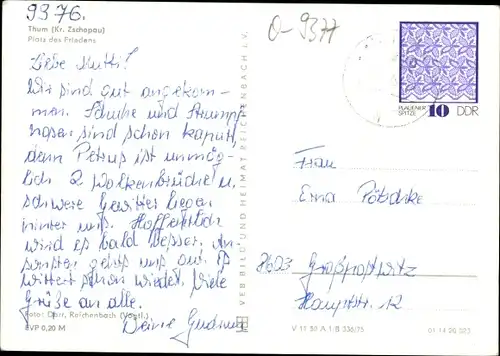 9376.
O-9377
Thum (Kr. Zschopau)
Platz des Friedens
Liebe Mutti!
Wir sind gut angekom-
men. Schuhe und Strumpf
hosen sind schon kaputt,
denn Petrus ist unmög-
lich 2 Wolkenbrüche u.
schwere Gewitter liegen
hinter uns. Hoffentlich
wird es bald besser. An-
sonsten geht's uns gut. Es
wittert schon wieder. Viele
Grüße an alle.
Deine Gudrun
Foto: Darr, Reichenbach (Vogtl.)
EVP 0,20 M
VEB BILD UND HEIMAT REICHENBACH i. V.
PLAUENER
SPITZE 10 DDR
Frau
Erna Pötschke
8603 Großpostwitz
Hauptstr. 12
V 11 50 A 1/B 336/75
01 14 26 023